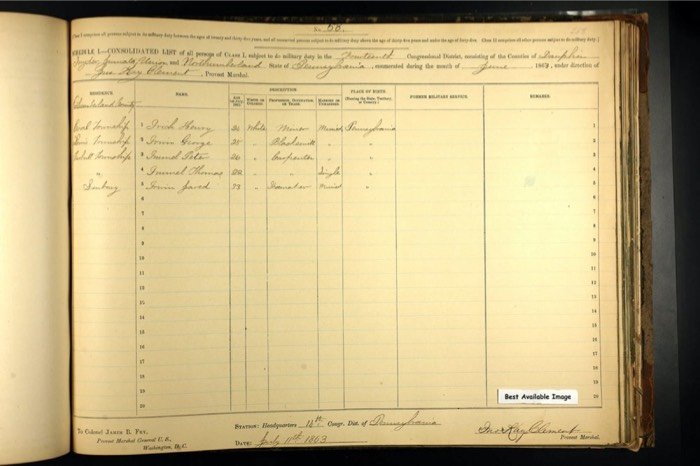 No. 55.
Class I comprises all persons subject to do military duty between the ages of twenty and thirty-five years, and all unmarried persons subject to do military duty above the age of thirty-five years and under the age of forty-five. Class II comprises all other persons subject to do military duty.
SCHEDULE I.—CONSOLIDATED LIST of all persons of CLASS I, subject to do military duty in the Fourteenth Congressional District, consisting of the Counties of Dauphin
Snyder, Juniata, Union and Northumberland State of Pennsylvania, enumerated during the month of June 1863, under direction of
Jno. Kay Clement, Provost Marshal.
RESIDENCE. NAME. DESCRIPTION PLACE OF BIRTH. FORMER MILITARY SERVICE. REMARKS.
WHITE OR COLORED. PROFESSION, OCCUPATION, OR TRADE. MARRIED OR UNMARRIED. (Naming the State, Territory, or Country.)
Northumberland County
Township 1 Henry White Miner Married Pennsylvania 1
Township 2 Irwin George 25 " Blacksmith " " 2
Township 3 Immel Peter 26 " Carpenter " " 3
" 4 Immel Thomas 22 " " Single " 4
Sunbury 5 Irwin Jared " " 5
6 6
7 7
8 8
9 9
10 10
11 11
12 12
13 13
14 14
15 15
16 16
17 17
18 18
19 19
20 20
Best Available Image
To Colonel JAMES B. FRY,
Provost Marshal General U. S.,
Washington, D. C.
STATION: Headquarters 14th Congr. Dist. of Pennsylvania
DATE: July 11th 1863
Jno Kay Clement
Provost Marshal.